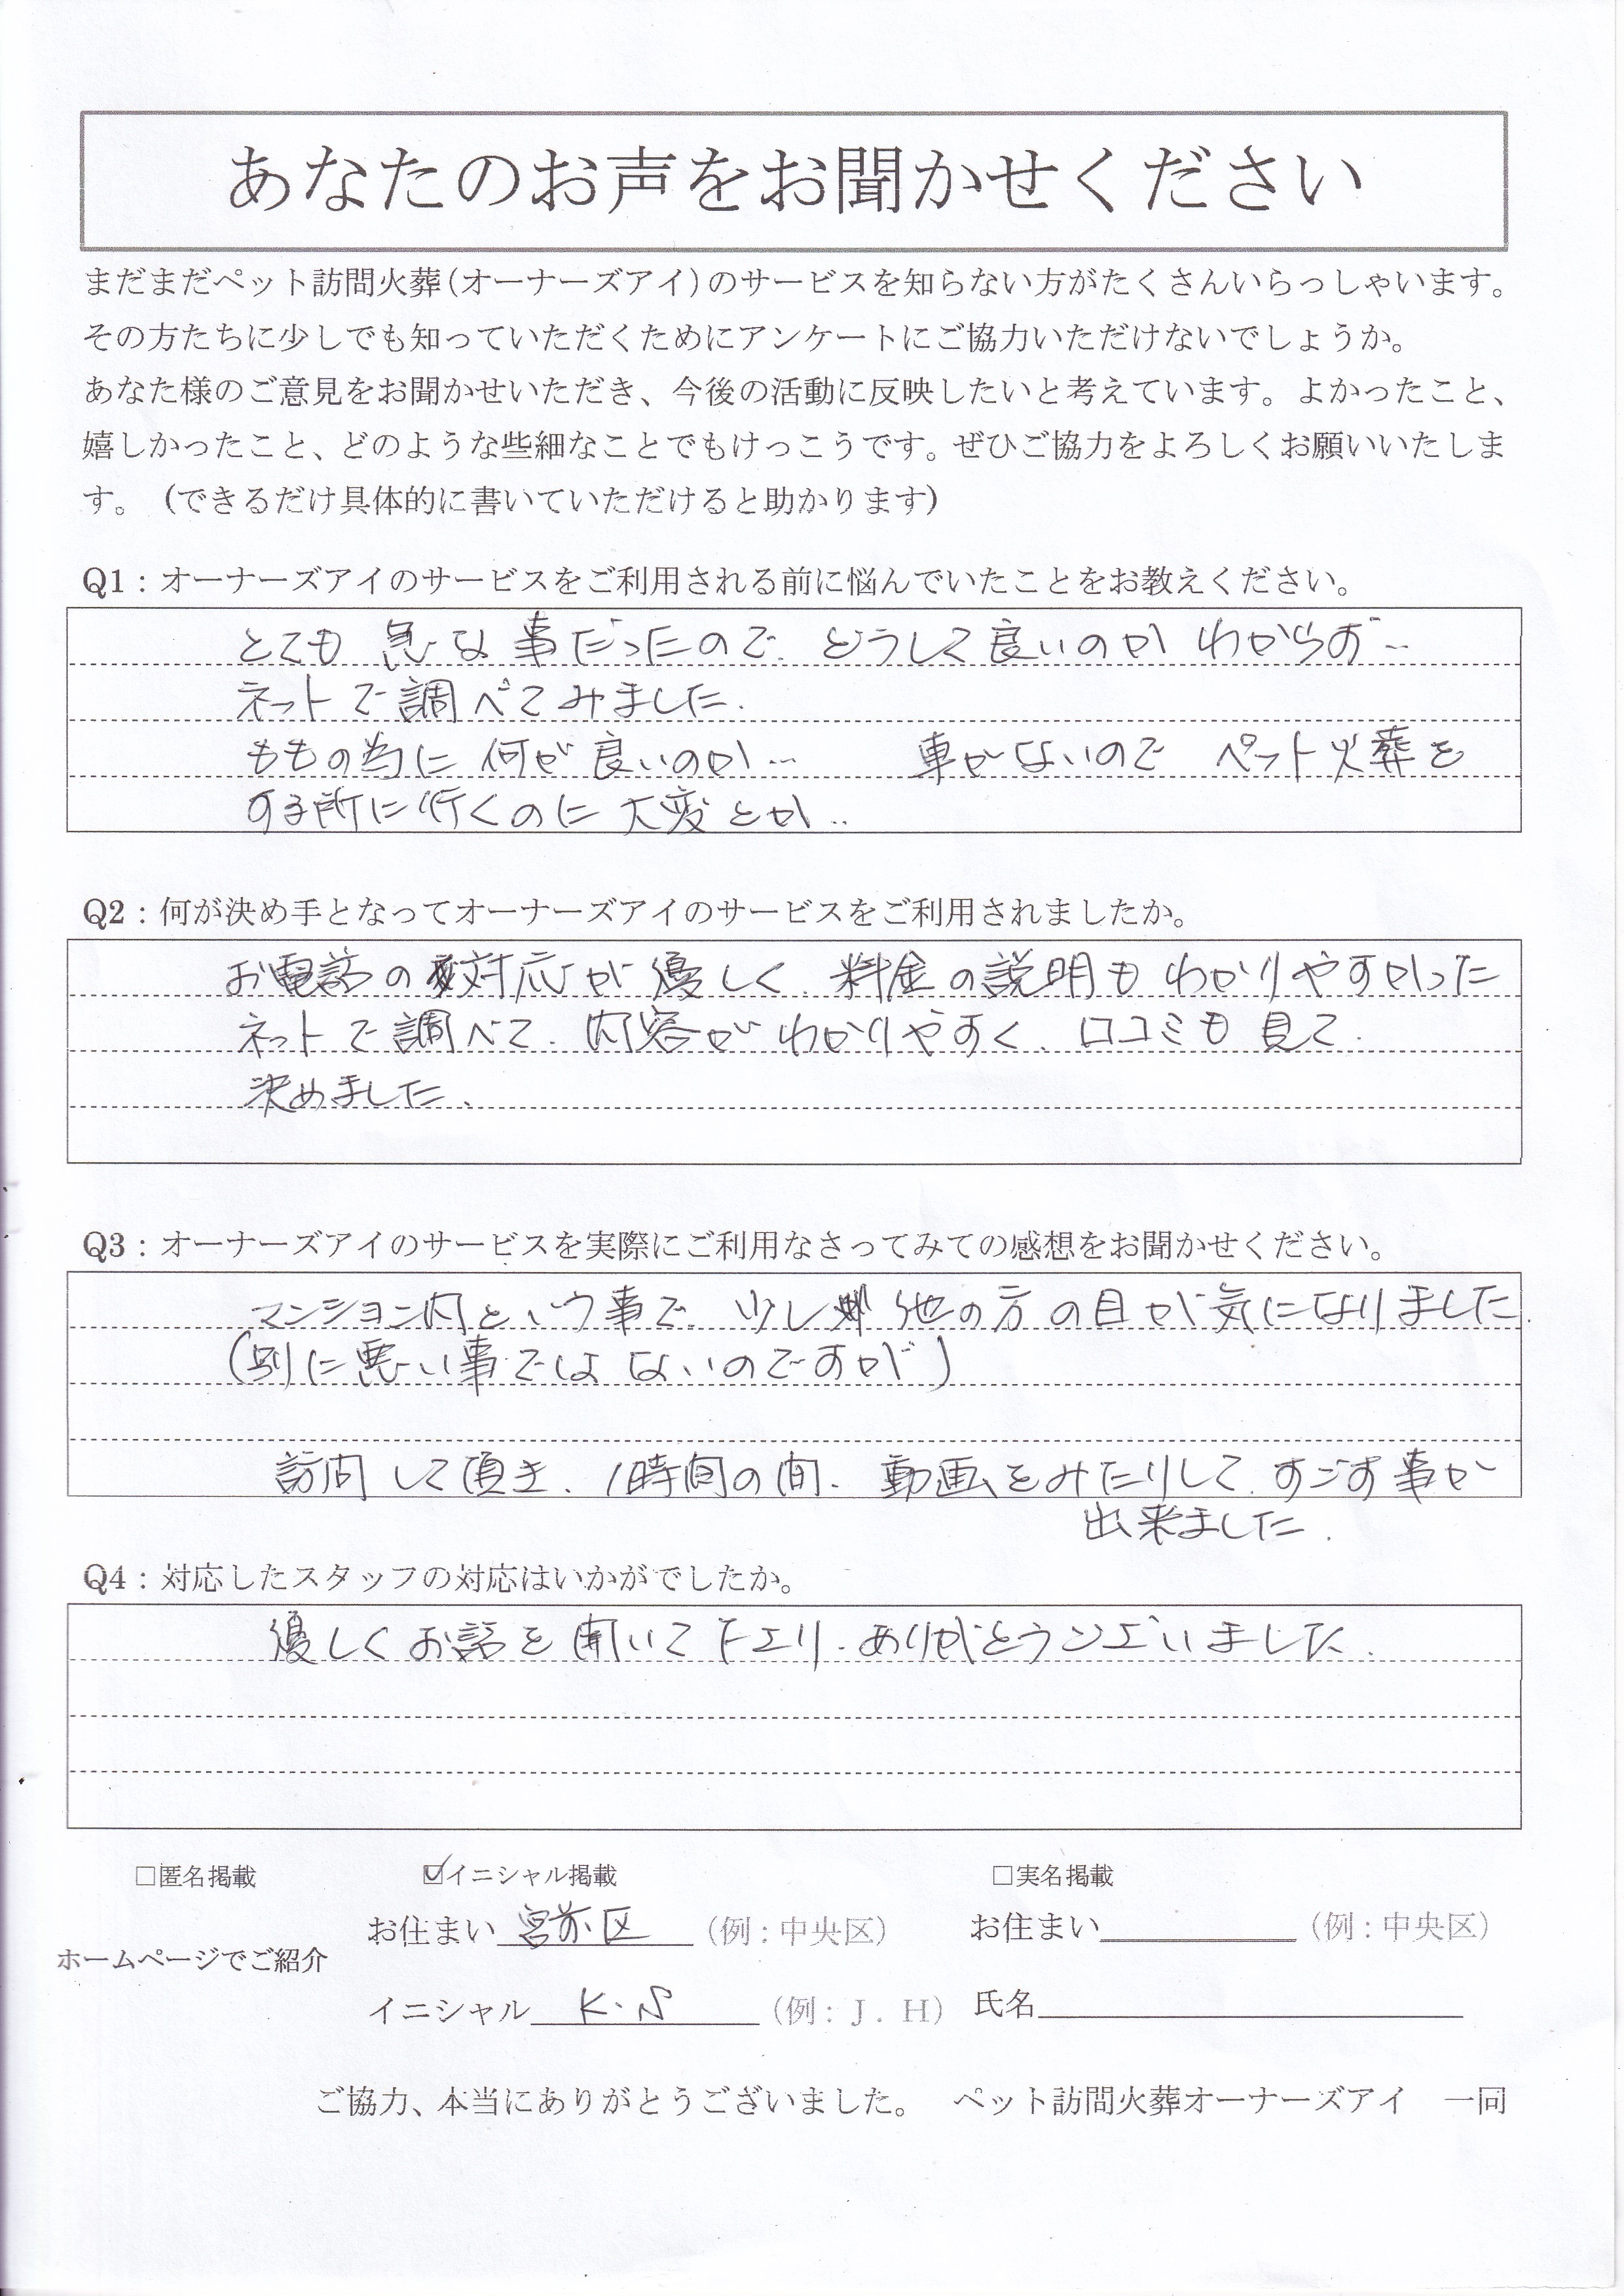 あなたのお声をお聞かせください
まだまだペット訪問火葬(オーナーズアイ)のサービスを知らない方がたくさんいらっしゃいます。
その方たちに少しでも知っていただくためにアンケートにご協力いただけないでしょうか。
あなた様のご意見をお聞かせいただき、今後の活動に反映したいと考えています。よかったこと、
嬉しかったこと、どのような些細なことでもけっこうです。ぜひご協力をよろしくお願いいたしま
す。（できるだけ具体的に書いていただけると助かります）
Q1：オーナーズアイのサービスをご利用される前に悩んでいたことをお教えください。
とても 急な事だったので、どうして良いのか わからず…
ネットで調べてみました。
ももの為に 何が良いのか… 車がないので ペット火葬を
する所に行くのに大変とか…
Q2：何が決め手となってオーナーズアイのサービスをご利用されましたか。
お電話の対応が優しく、料金の説明もわかりやすかった
ネットで調べて、内容がわかりやすく、口コミも見て、
決めました。
Q3：オーナーズアイのサービスを実際にご利用なさってみての感想をお聞かせください。
マンション内という事で、少し他の方の目が気になりました。
(別に悪い事ではないのですが)
訪問して頂き、1時間の間、動画をみたりして、すごす事が
出来ました。
Q4：対応したスタッフの対応はいかがでしたか。
優しくお話を聞いて下さり、ありがとうございました。
□匿名掲載 ☑イニシャル掲載 □実名掲載
お住まい 宮前区 （例：中央区） お住まい （例：中央区）
ホームページでご紹介
イニシャル K.N （例：J．H） 氏名
ご協力、本当にありがとうございました。 ペット訪問火葬オーナーズアイ 一同